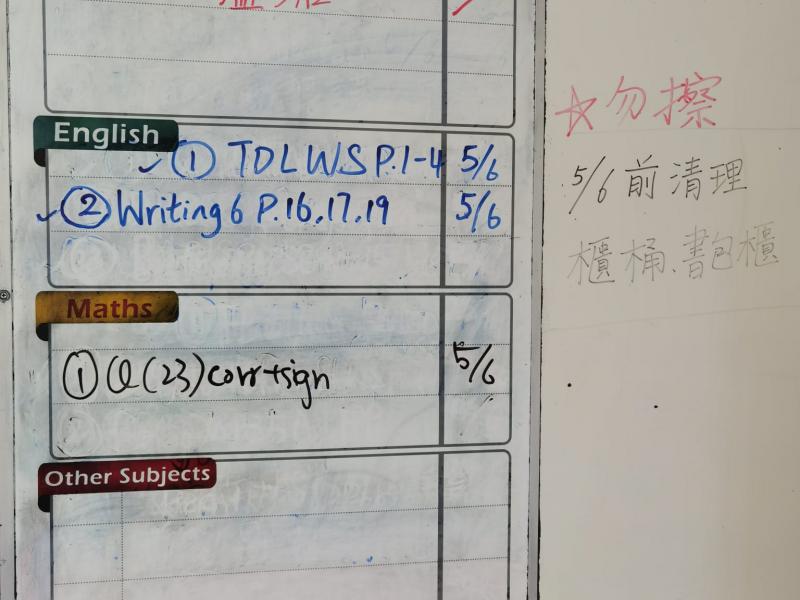 English
① TDLWS P.1-4 5/6
② Writing 6 P.16,17,19 5/6
Maths
① Q(23) corr+sign 5/6
Other Subjects
☆勿擦
5/6前清理
櫃桶、書包櫃